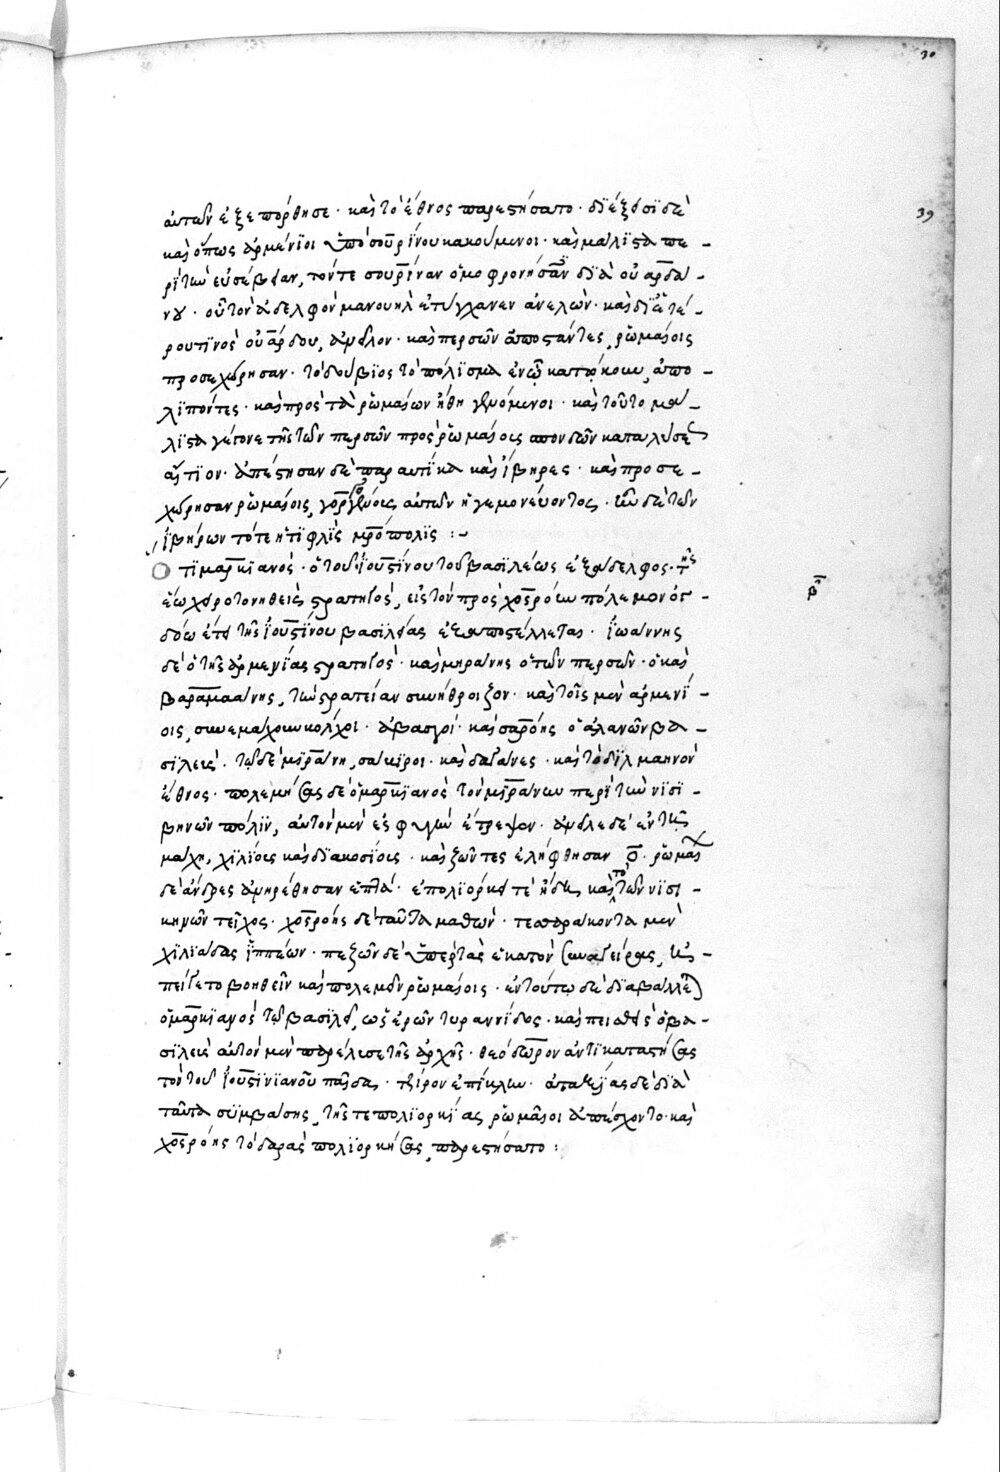 39
39
αὐτῶν ἐξεπόρθησε· καὶ τὸ ἔθνος παρεστήσατο· διέξεισι δὲ
καὶ ὅπως ἀρμένϊοι ὑπὸ σουρίνου κακούμενοι· καὶ μάλϊστα πε-
ρὶ τὴν εὐσέβειαν, τόν τε σουρίναν ὁμοφρονήσαντες διὰ οὐαρδά-
νου· οὗ τὸν ἀδελφὸν μανουὴλ ἐτύγχανεν ἀνελών· καὶ δι' ἑτέ-
ρου τινὸς οὐάρδου, ἀνεῖλον· καὶ περσῶν ἀποστάντες, ῥωμαίοις
προσεχώρησαν· τὸ δούβιος τὸ πόλϊσμα ἐν ᾧ κατῴκουν, ἀπο-
λϊπόντες· καὶ πρὸς τὰ ῥωμαίων ἤθη γενόμενοι· καὶ τοῦτο μά-
λϊστα γέγονε τῆς τῶν περσῶν πρὸς ῥωμαίοις σπονδῶν καταλύσεως
αἴτϊον· ἀπέστησαν δὲ παραυτίκα καὶ ἴβηρες· καὶ προσε-
χώρησαν ῥωμαίοις, γοργένους αὐτῶν ἡγεμονεύοντος· ἦν δὲ τῶν
ἰβήρων τότε ἡ τϊφλὶς μητρόπολϊς :-
Ὅτι μαρκιανὸς· ὁ τοῦ ἰουστίνου τοῦ βασϊλέως ἐξάδελφος· τῆς
ἕω χειροτονηθεὶς στρατηγὸς, εἰς τὸν πρὸς χοσρόην πόλεμον ὀγ-
δόω ἔτει τῆς ἰουστίνου βασϊλείας ἐξαποστέλλεται· ἰωάννης
δὲ ὁ τῆς ἀρμενίας στρατηγὸς· καὶ μηράνης ὁ τῶν περσῶν· ὁ καὶ
βαραμαάνης, τὴν στρατείαν συνήθροιζον· καὶ τοῖς μὲν ἀρμενί-
οις, συνεμάχουν κόλχοι· ἀβασγοί· καὶ σαρόης ὁ ἀλανῶν βα-
σϊλεύς· τῷ δὲ μϊράνη, σάκϊροι· καὶ δαγάνες· καὶ τὸ διλμαηνὸν
ἔθνος· πολεμήσας δὲ ὁ μαρκϊανὸς τὸν μϊράνην περὶ τὴν νϊσϊ-
βηνῶν πόλιν, αὐτὸν μὲν ἐς φυγὴν ἔτρεψεν· ἀνεῖλε δὲ ἐν τῇ
μάχη, χϊλίους καὶ διακοσίους· καὶ ζῶντες ἐλήφθησαν ο̅· ῥωμαίων
δὲ ἄνδρες ἀνηρέθησαν ἑπτά· ἐπολϊόρκει τε ἤδη καὶ τὸ τῶν νϊσι-
βηνῶν τεῖχος· χοσρόης δὲ ταῦτα μαθών· τεσσαράκοντα μὲν
χϊλϊάδας ἱππέων· πεζῶν δὲ ὑπὲρ τὰς ἑκατὸν συναγείρας, ἠ-
πείγετο βοηθεῖν καὶ πολεμεῖν ῥωμαίοις· ἐν τούτῳ δὲ διαβάλλεται
ὁ μαρκϊανὸς τῷ βασϊλεῖ, ὡς ἐρῶν τυραννίδος· καὶ πεισθεὶς ὁ βα-
σϊλεὺς αὐτὸν μὲν παρέλυσε τῆς ἀρχῆς· θεόδωρον ἀντϊκαταστήσας
τὸν τοῦ ἰουστϊνϊανοῦ παῖδα, τζίρον ἐπίκλην· ἀταξίας δὲ διὰ
ταῦτα συμβάσης, τῆς τε πολϊορκίας ῥωμαῖοι ἀπέσχοντο· καὶ
χοσρόης τὸ δαρὰς πολϊορκήσας, παρεστήσατο :